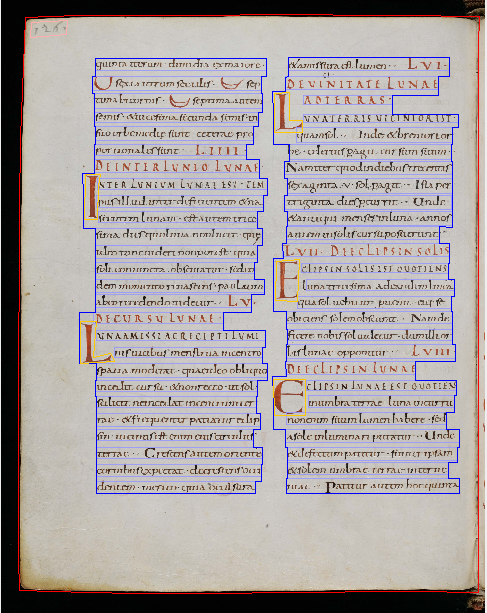 126.
quinta iterum dimidia ex maiore ·
Sexta iterum sesculis · Sep
tima bicornis · Septima autem
semis ·
suo orbe medie sunt · ceterae pro
portionales sunt · LIIII ·
DE INTERLUNIO LUNAE
INTERLUNIUM LUNAE EST TEM
pus illud inter deficientem & na
scentem lunam · est autem trice
sima dies qua luna non lucet · que
ideo tunc uideri non potest · quia
soli coniuncta obscuratur · sed
dem momento renascens paulatim
ab eo recedendo uidetur · LV ·
DE CURSU LUNAE
LUNA AMISSI AC RECEPTI LUMI
nis uicibus menstrua incerto
spatia moderat · quae ideo obliquo
incedit cursu · & non recto ut sol
scilicet ne incedat in centrum ter
rae · & frequenter patiatur eclip
sin uicinus est enim eius circulus
terrae · Crescens autem oriente
cornibus expectat · decrescens occi
dentem · merito quia occasura
& amissura est lumen · LVI ·
DE VICINITATE LUNAE
AD TERRAS ·
LUNA TERRIS VICINIOR EST
quam sol · Inde & breuiore or
be celerius pagit cursum suum ·
Nam iter quod in diebus trecentis
sexaginta V · sol pagit · Ista per
triginta dies currit · Unde
& antiqui menses in luna · annos
autem in solis cursu posuerunt ·
LVII · DE ECLIPSIN SOLIS
ECLIPSIN SOLIS EST QUOTIENS
luna tricesima ad eandem lineam
qua sol uehitur peruenit · eique se
obiciens solem obscurat · Nam de
ficere nobis sol uidetur · dum illi or
bis lunae opponitur · LVIII ·
DE ECLIPSIN LUNAE
ECLIPSIN LUNAE EST QUOTIEN
in umbra terrae luna incurrit
non enim suum lumen habere · sed
a sole inluminari putatur · Unde
& defectum patitur · si inter ipsam
& solem umbra terrae interue
niat · Patitur autem hoc quinta